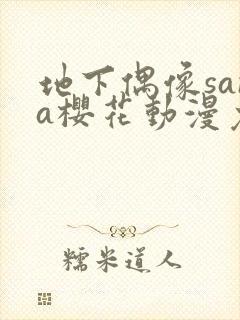 地下偶像sa
a櫻花動漫
糯米道人